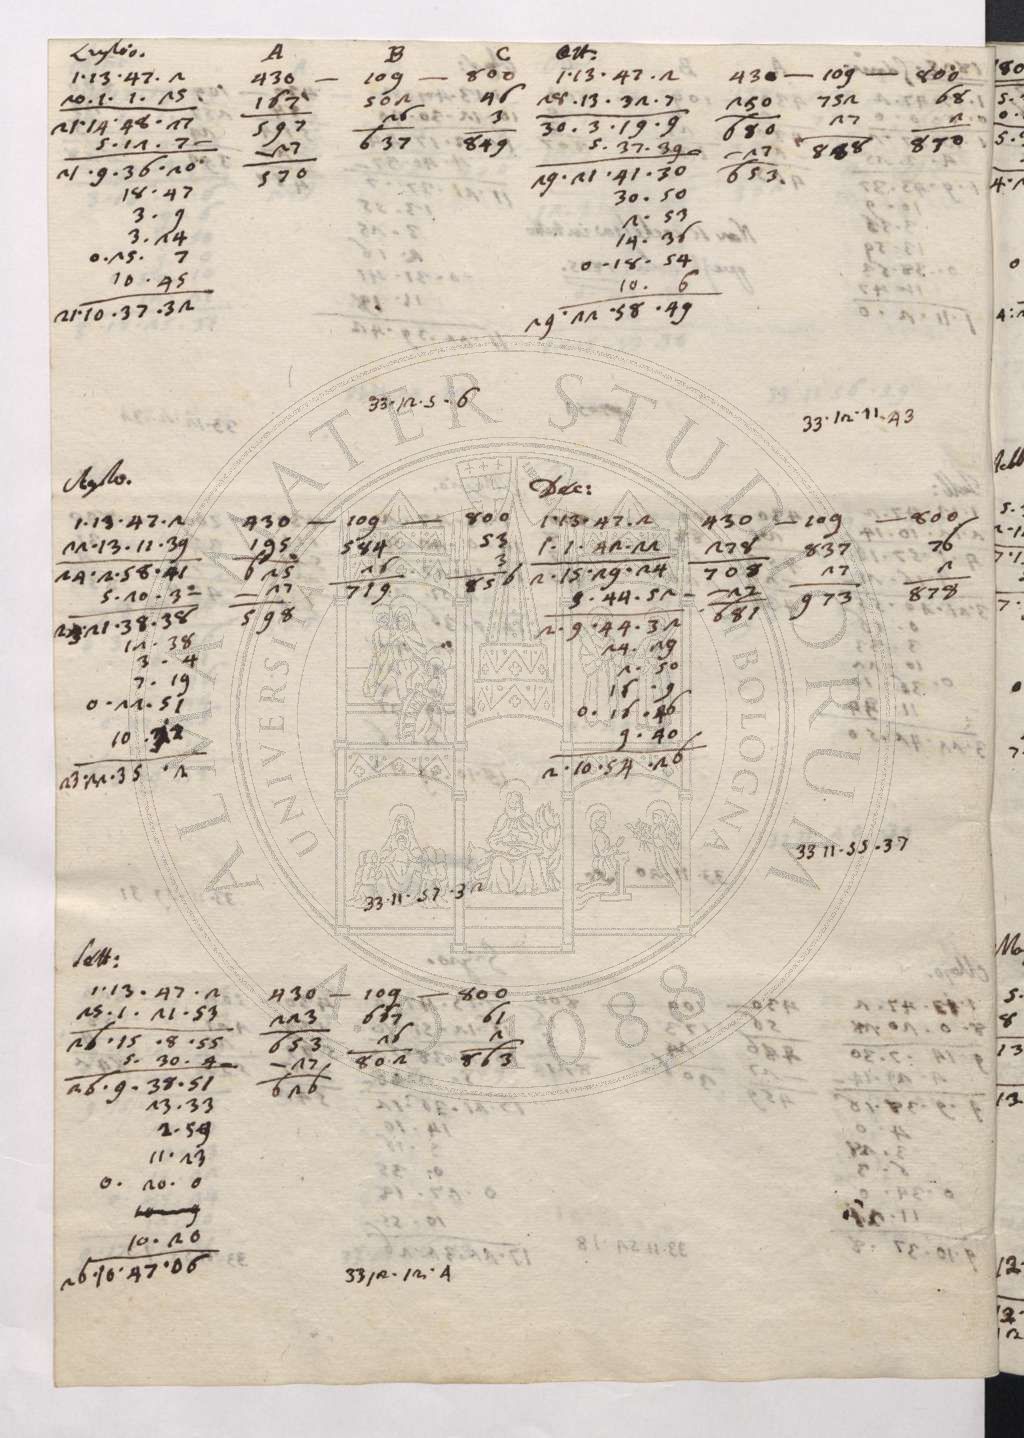 Luglio. A B C
1·13·47·2 430 — 109 — 800
20·1·1·25 167 502 46
21·14·48·27 597 26 3
5·12·7– –27 637 849
21·9·36·20 570
18·47
3·9
3·24
0·25·7
10·45
21·10·37·32
33·12·5·6
Ott:
1·13·47·2 430 — 109 — 800
28·13·32·7 250 752 68
30·3·19·9 680 27 2
5·37·39– –27 888 870
29·21·41·30 653
30·50
2·53
14·36
0·18·54
10·6
29·22·58·49
33·12·11·43
1·13·47·2 430 — 109 — 800
22·13·11·39 195 584 53
24·2·58·41 625 26 3
5·20·3– –27 719 856
23·21·38·38 598
12·38
3·4
7·19
0·22·51
10·32
23·22·35·2
33·11·57·32
Dec:
1·13·47·2 430 — 109 — 800
1·1·42·22 278 837 76
2·15·29·24 708 27 2
5·44·52– –27 973 878
2·9·44·32 681
24·29
2·50
16·9
0·16·46
9·40
2·10·54·26
33 11·55·37
Sett:
1·13·47·2 430 — 109 — 800
25·1·21·53 223 667 61
26·15·8·55 653 26 2
5·30·4– –27 802 863
26·9·38·51 626
23·33
2·59
11·23
0·20·0
10·20
26·10·47·06
33 12·12·4
ALMA MATER STUDIORUM
UNIVERSITÀ DI BOLOGNA
A.D. 1088